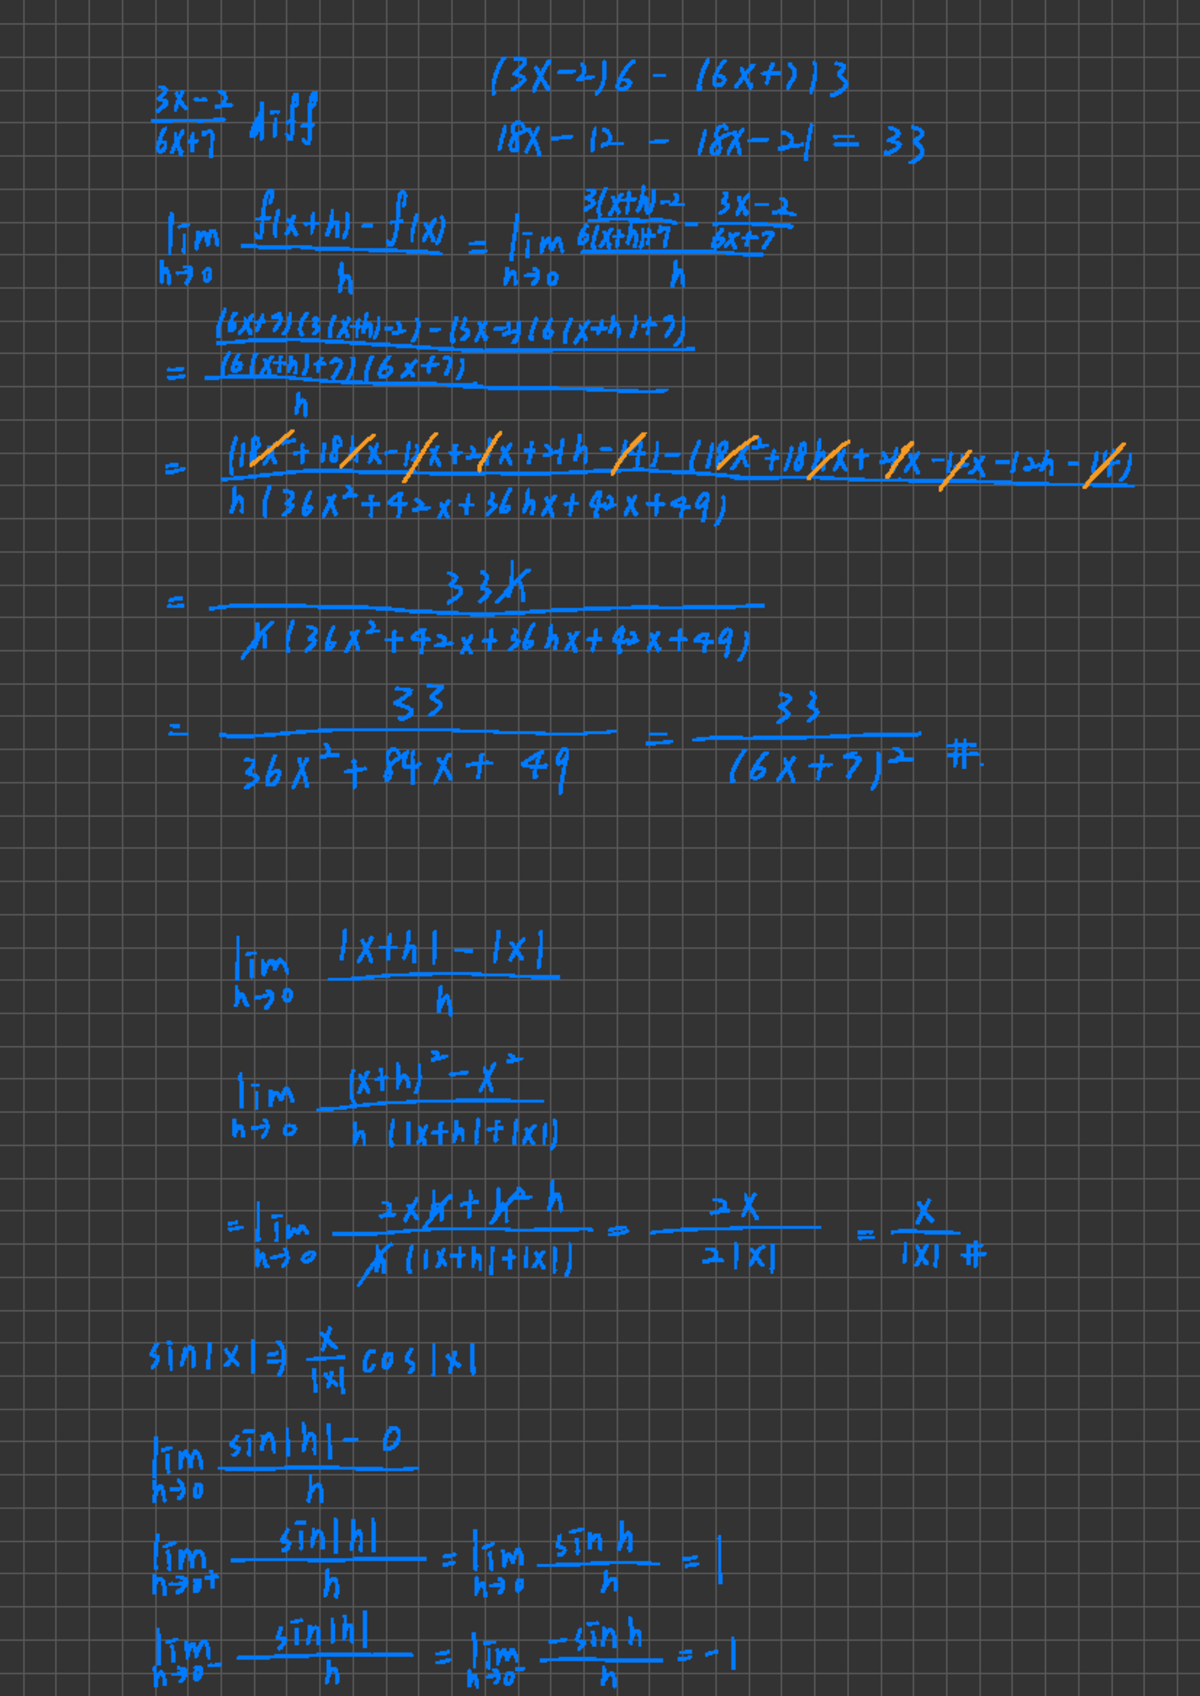 (3x-2)6 - (6x+7)3
(3x-2)/(6x+7) diff
18x-12 - 18x-21 = 33
lim h→0 (f(x+h)-f(x))/h = lim h→0 ((3(x+h)-2)/(6(x+h)+7) - (3x-2)/(6x+7))/h
= (((6x+7)(3(x+h)-2)-(3x-2)(6(x+h)+7))/((6(x+h)+7)(6x+7)))/h
= ((18x²+18hx-12x+21x+21h-14)-(18x²+18hx+21x-12x-12h-14))/(h(36x²+42x+36hx+42x+49))
= 33h/(h(36x²+42x+36hx+42x+49))
= 33/(36x²+84x+49) = 33/(6x+7)² #.
lim h→0 (|x+h|-|x|)/h
lim h→0 ((x+h)²-x²)/(h(|x+h|+|x|))
= lim h→0 (2xh+h² h)/(h(|x+h|+|x|)) = 2x/(2|x|) = x/|x| #
sin|x| ⇒ x/|x| cos|x|
lim h→0 (sin|h|-0)/h
lim h→0+ sin|h|/h = lim h→0 sin h/h = 1
lim h→0- sin|h|/h = lim h→0- -sin h/h = -1